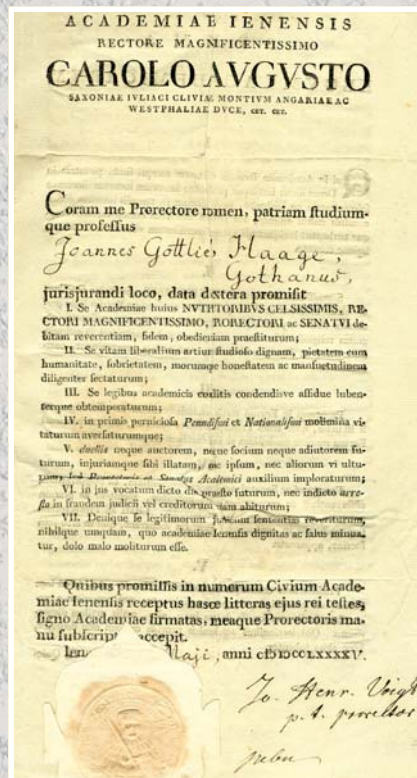 ACADEMIAE IENENSIS
RECTORE MAGNIFICENTISSIMO
CAROLO AVGVSTO
SAXONIAE IVLIACI CLIVIAE MONTIVM ANGARIAE AC
WESTPHALIAE DVCE, CET. CET.
Coram me Prorectore nomen, patriam ſtudium-
que profeſſus
Joannes Gottlieb Haage,
Gothanus,
jurisjurandi loco, data dextera promiſit
I. Se Academiae huius NVTRITORIBVS CELSISSIMIS, RE-
CTORI MAGNIFICENTISSIMO, RORECTORI ac SENATVI de-
bitam reverentiam, fidem, obedieniam praeſtiturum;
II. Se vitam liberalium artium ſtudioſo dignam, pietatem cum
humanitate, ſobrietatem, morumque honeſtatem ac manſuetudinem
diligenter ſectaturum;
III. Se legibus academicis conditis condendisve aſſidue luben-
terque obtemperaturum;
IV. in primis pernicioſa Pennaliſmi et Nationaliſmi molimina vi-
taturum averſaturumque;
V. duellis neque auctorem, neque ſocium neque adiutorem fu-
turum, injuriamque ſibi illatam, nec ipſum, nec aliorum vi ultu-
rum, ſed Prorectoris et Senatus Academici auxilium imploraturum;
VI. in jus vocatum dicto die praeſto futurum, nec indicto arre-
ſto in fraudem judicii vel creditorum uam abiturum;
VII. Denique ſe legitimorum judicum ſententias reveriturum,
nihilque umquam, quo academiae Ienenſis dignitas ac ſalus minua-
tur, dolo malo moliturum eſſe.
Quibus promiſſis in numerum Civium Acade-
miae Ienenſis receptus hasce litteras ejus rei teſtes,
ſigno Academiae firmatas, meaque Prorectoris ma-
nu ſubſcriptas accepit.
Ien Maji, anni cIɔIɔccLXXXXV.
Jo. Henr. Voigt
p. t. prorector